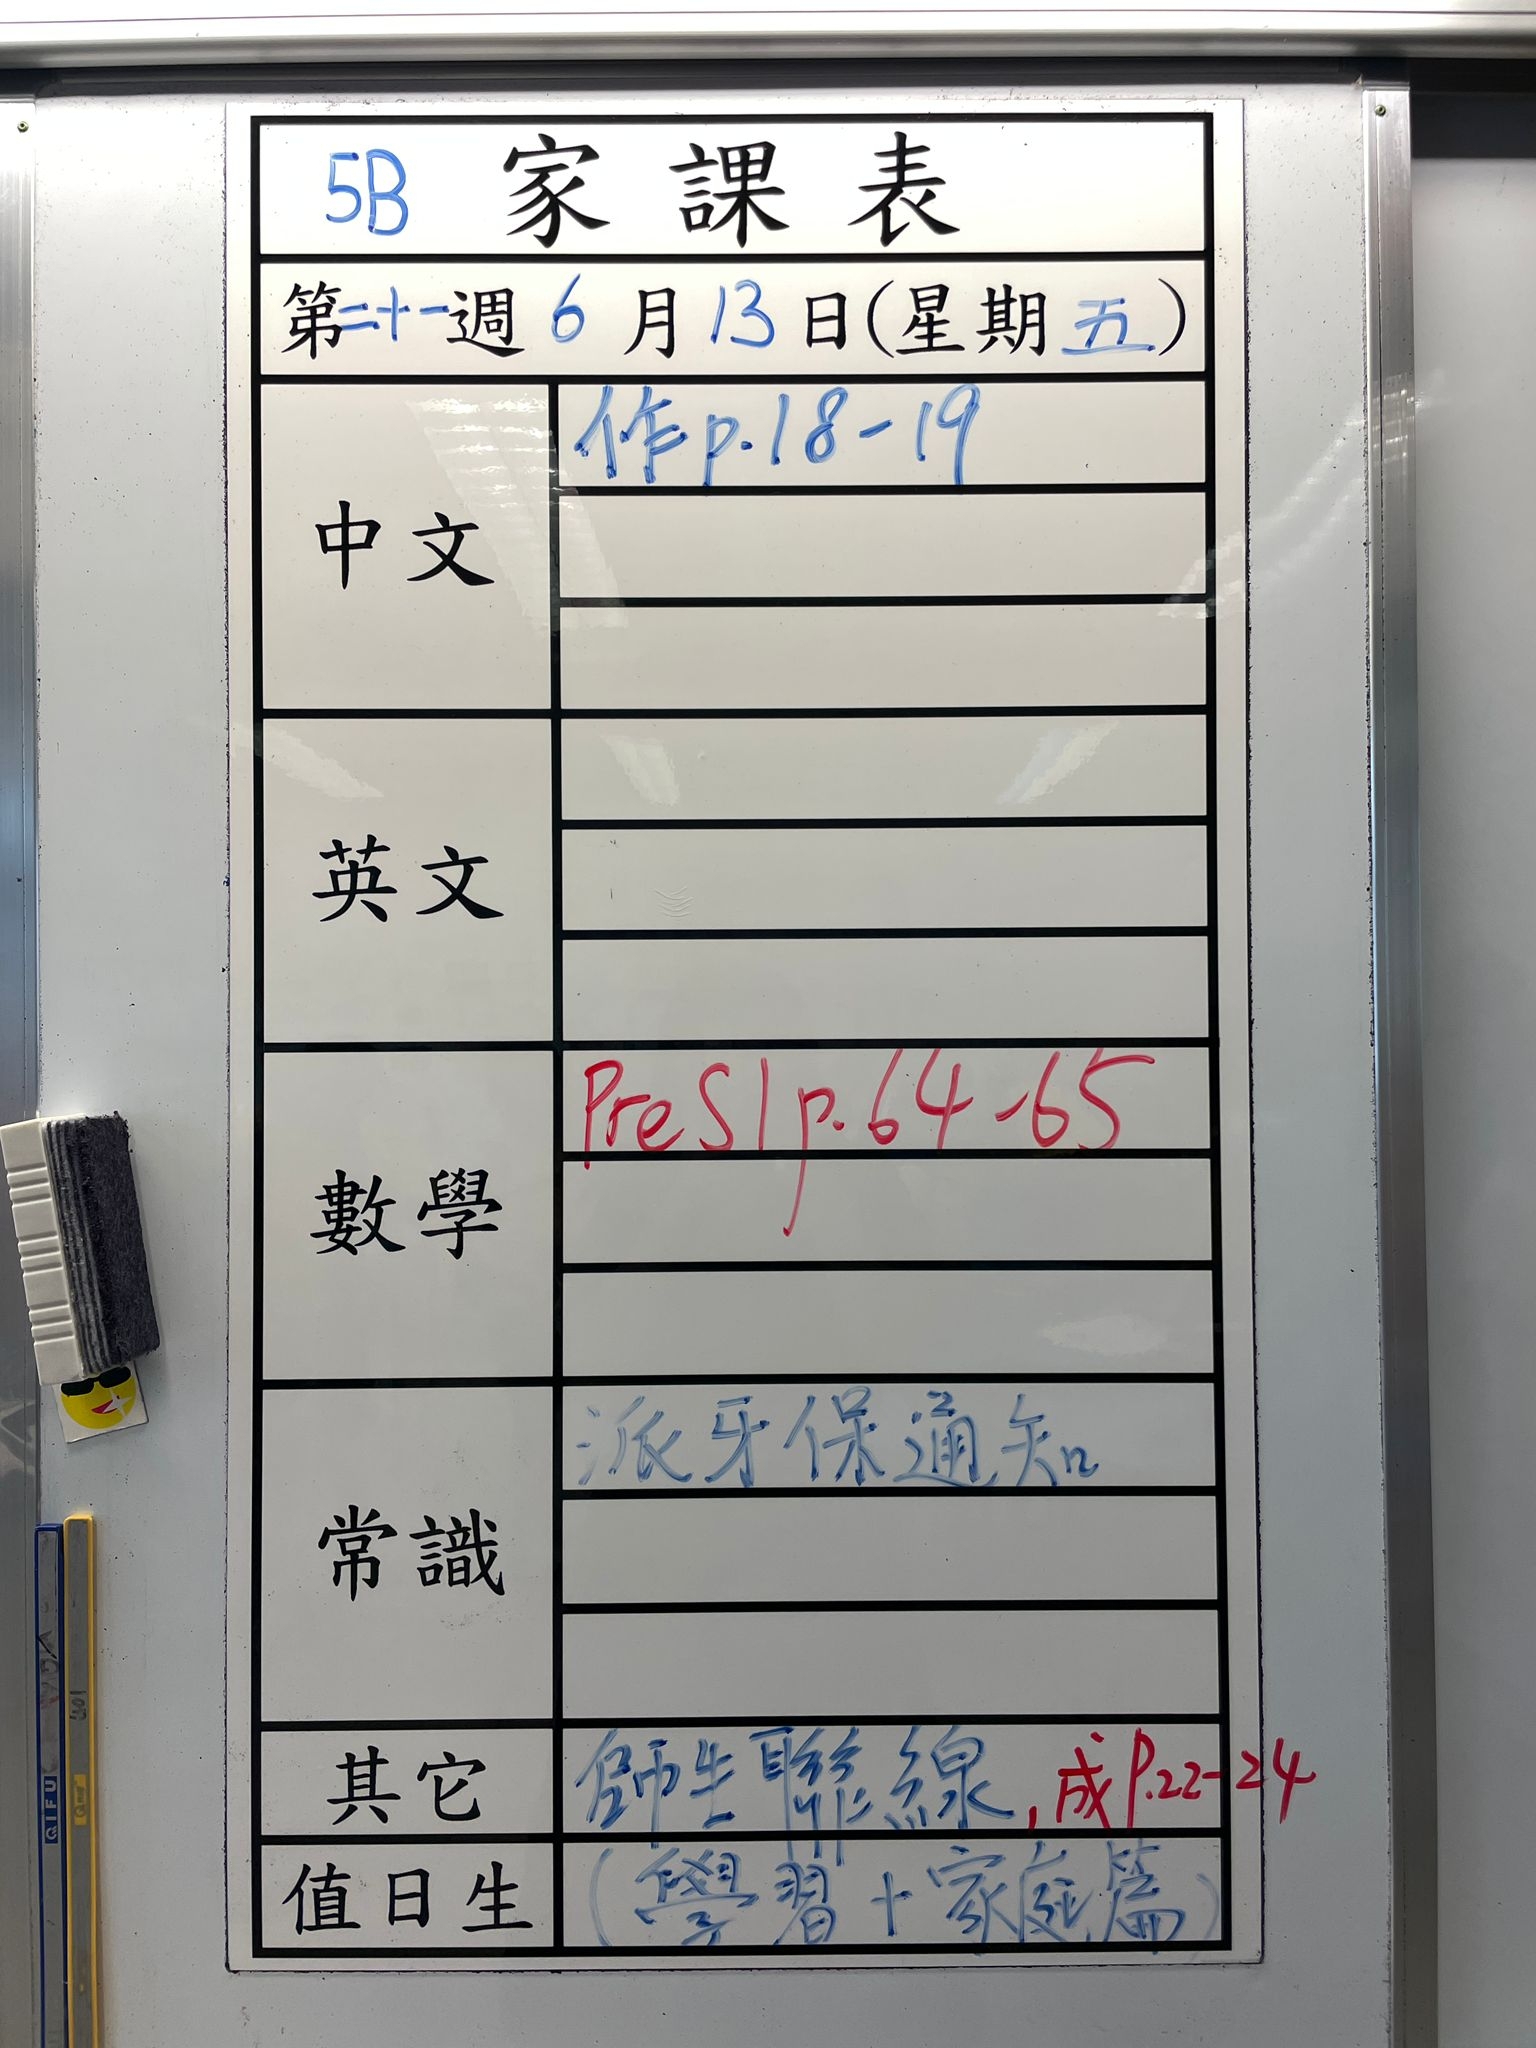 5B 家課表
第二十一週 6月13日(星期五)
中文
作p.18-19
英文
數學
PreS1 p.64-65
常識
派牙保通知
其它
師生聯線, 成P.22-24
值日生
(學習+家庭篇)
QIFU